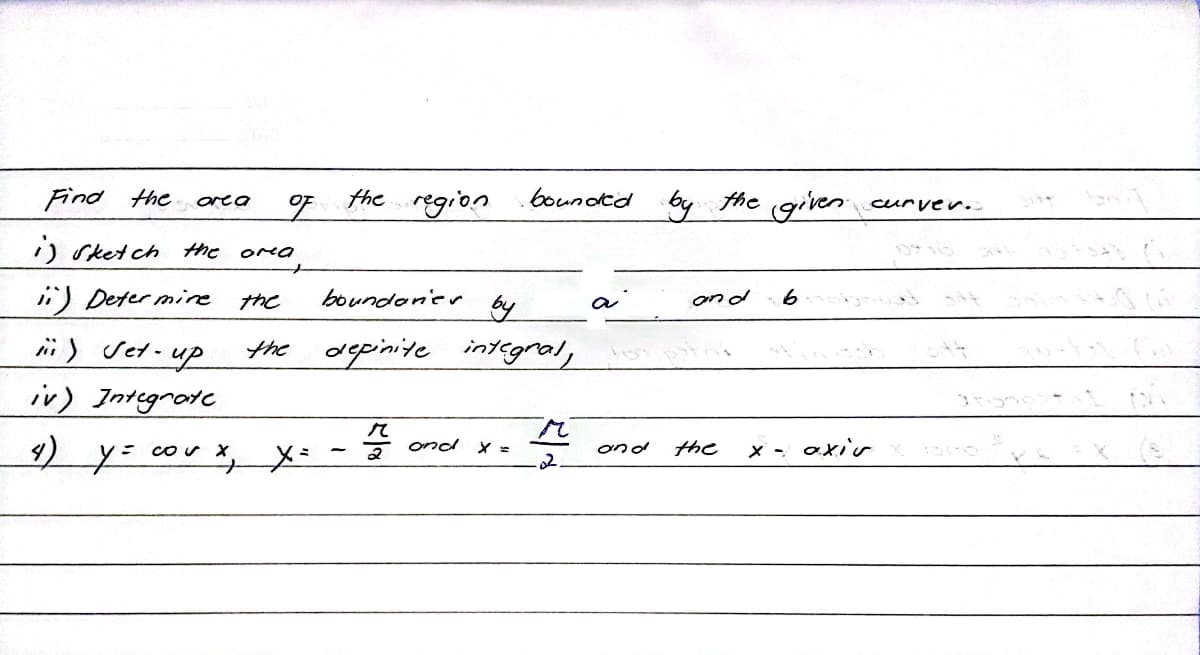 Find the area of the region bounded by the given curves.
i) Sketch the area,
ii) Determine the boundaries by a and b
iii) Set-up the definite integral,
iv) Integrate
4) y = cos x, x = - π/2 and x = π/2 and the x - axis